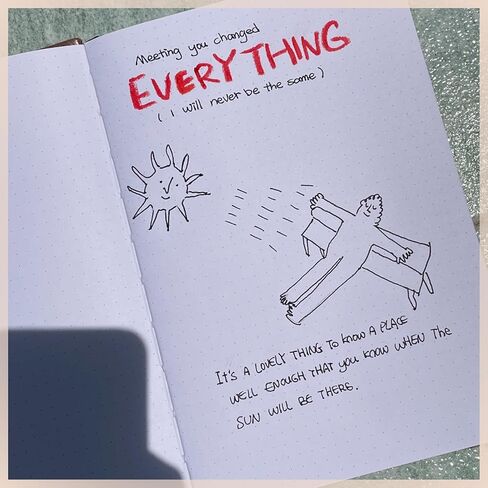 Meeting you changed
EVERYTHING
( I will never be the same )
It's A LOVELY THING To Know A PLACE
WELL ENOUGH THAT you KNOW WHEN The
SUN WILL BE THERE.